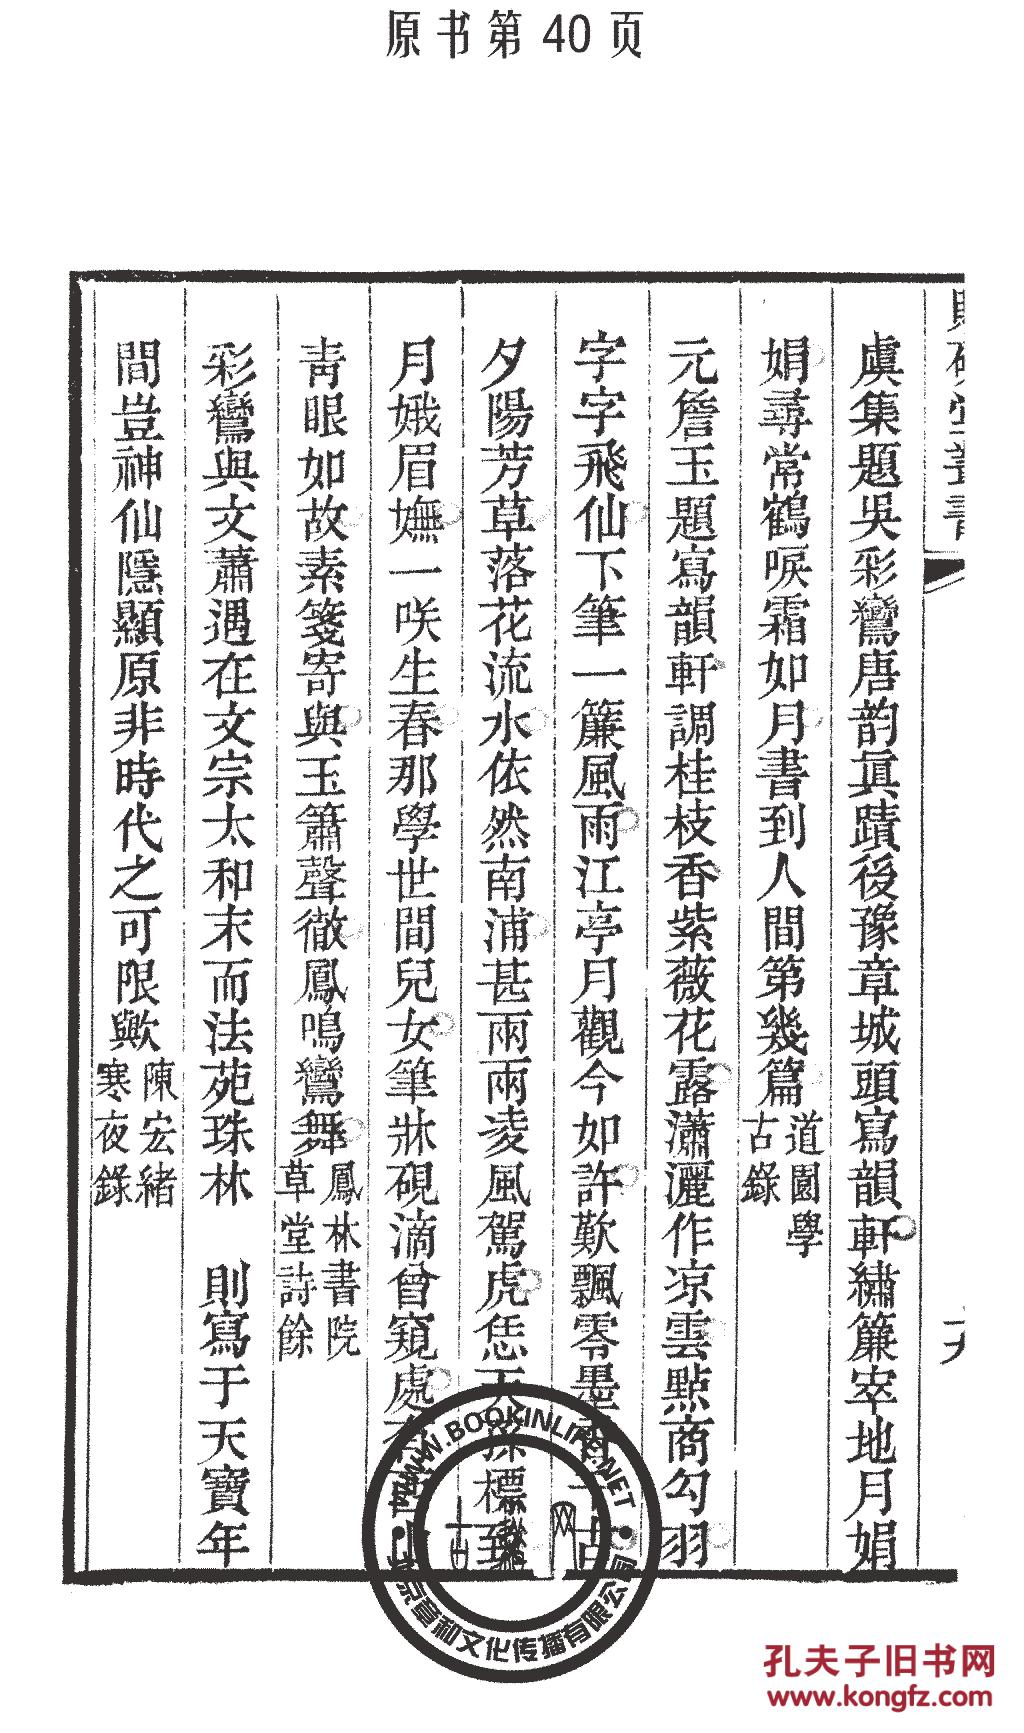 原书第 40 页
虞集題吳彩鸞唐韵眞蹟後豫章城頭寫韻軒繡簾宰地月娟
娟尋常鶴唳霜如月書到人間第幾篇道園學古錄
元詹玉題寫韻軒調桂枝香紫薇花露瀟灑作凉雲點商勾羽
字字飛仙下筆一簾風雨江亭月觀今如許歎飄零墨
夕陽芳草落花流水依然南浦甚兩兩凌風駕虎恁天孫標致
月娥眉嫵一咲生春那學世間兒女筆牀硯滴曾窺處
靑眼如故素箋寄與玉簫聲徹鳳鳴鸞舞鳳林書院草堂詩餘
彩鸞與文蕭遇在文宗太和末而法苑珠林 則寫于天寶年
間豈神仙隱顯原非時代之可限歟陳宏緒寒夜錄
WWW.BOOKINLIFE.NET
北京章和文化传播有限公司
孔夫子旧书网
www.kongfz.com